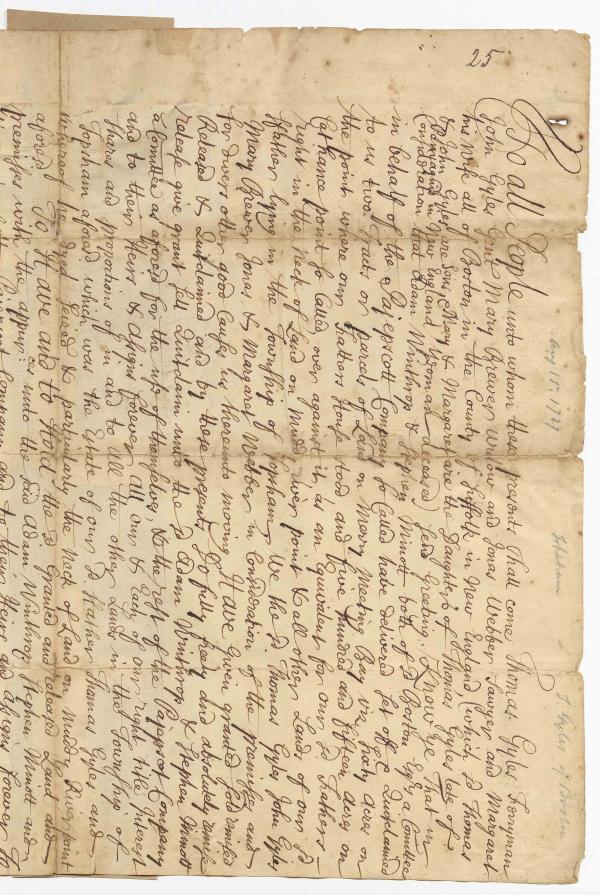 25
Aug 15. 1727
Topsham
T Gyles of Boston
To all People unto whom these presents Shall come Thomas Gyles Ferryman
John Gyles Gent Mary Brewer Widow and Jonas Webber Sawyer and Margaret
his Wife all of Boston in the County of Suffolk in New England (which sd Thomas
& John Gyles are Sons & Mary & Margaret are the Daughters of Thomas Gyles late of
in New England Yeoman deceased) Send Greeting. Know ye That in
Consideration that Adam Winthrop & Stephen Minott both of sd Boston Esqrs a Comittee
in behalf of the Pejepscott Company so Called have delivered set off & Quitclaimed
to us two Tracts or parcels of Land on Merry Meeting Bay viz Sixty acres on
the point where our Fathers House stood, and five hundred and fifteen acres on
Cathance point so Called over against it, as an Equivalent for our sd Fathers
right in the Neck of Land on Muddy River point & all other Lands of our sd
Father lying in the Township of Topsham, We the sd Thomas Gyles John Gyles
Mary Brewer Jonas & Margaret Webber in Consideration of the premisses and
for divers other good Causes us thereunto moving Have given granted sold remised
Released & Quitclaimed and by these presents Do fully freely and absolutely remise
release give grant sell Quitclaim unto the sd Adam Winthrop & Stephen Minott
a Comittee as aforesd for the use of themselves, & the rest of the Pejepscot Company
and to their Heirs & assigns forever all our & Each of our right title Interest
Shares and proportions of in and to all the other Lands in the Township of
Topsham aforesd which was the Estate of our sd Father Thomas Gyles and
whereof he dyed Seized & particularly the Neck of Land on Muddy River point
aforesd To Have and to Hold the sd Granted and released Land and
premisses with the appurces unto the said Adam Winthrop Stephen Minott and
Company and to their Heirs and assigns forever So